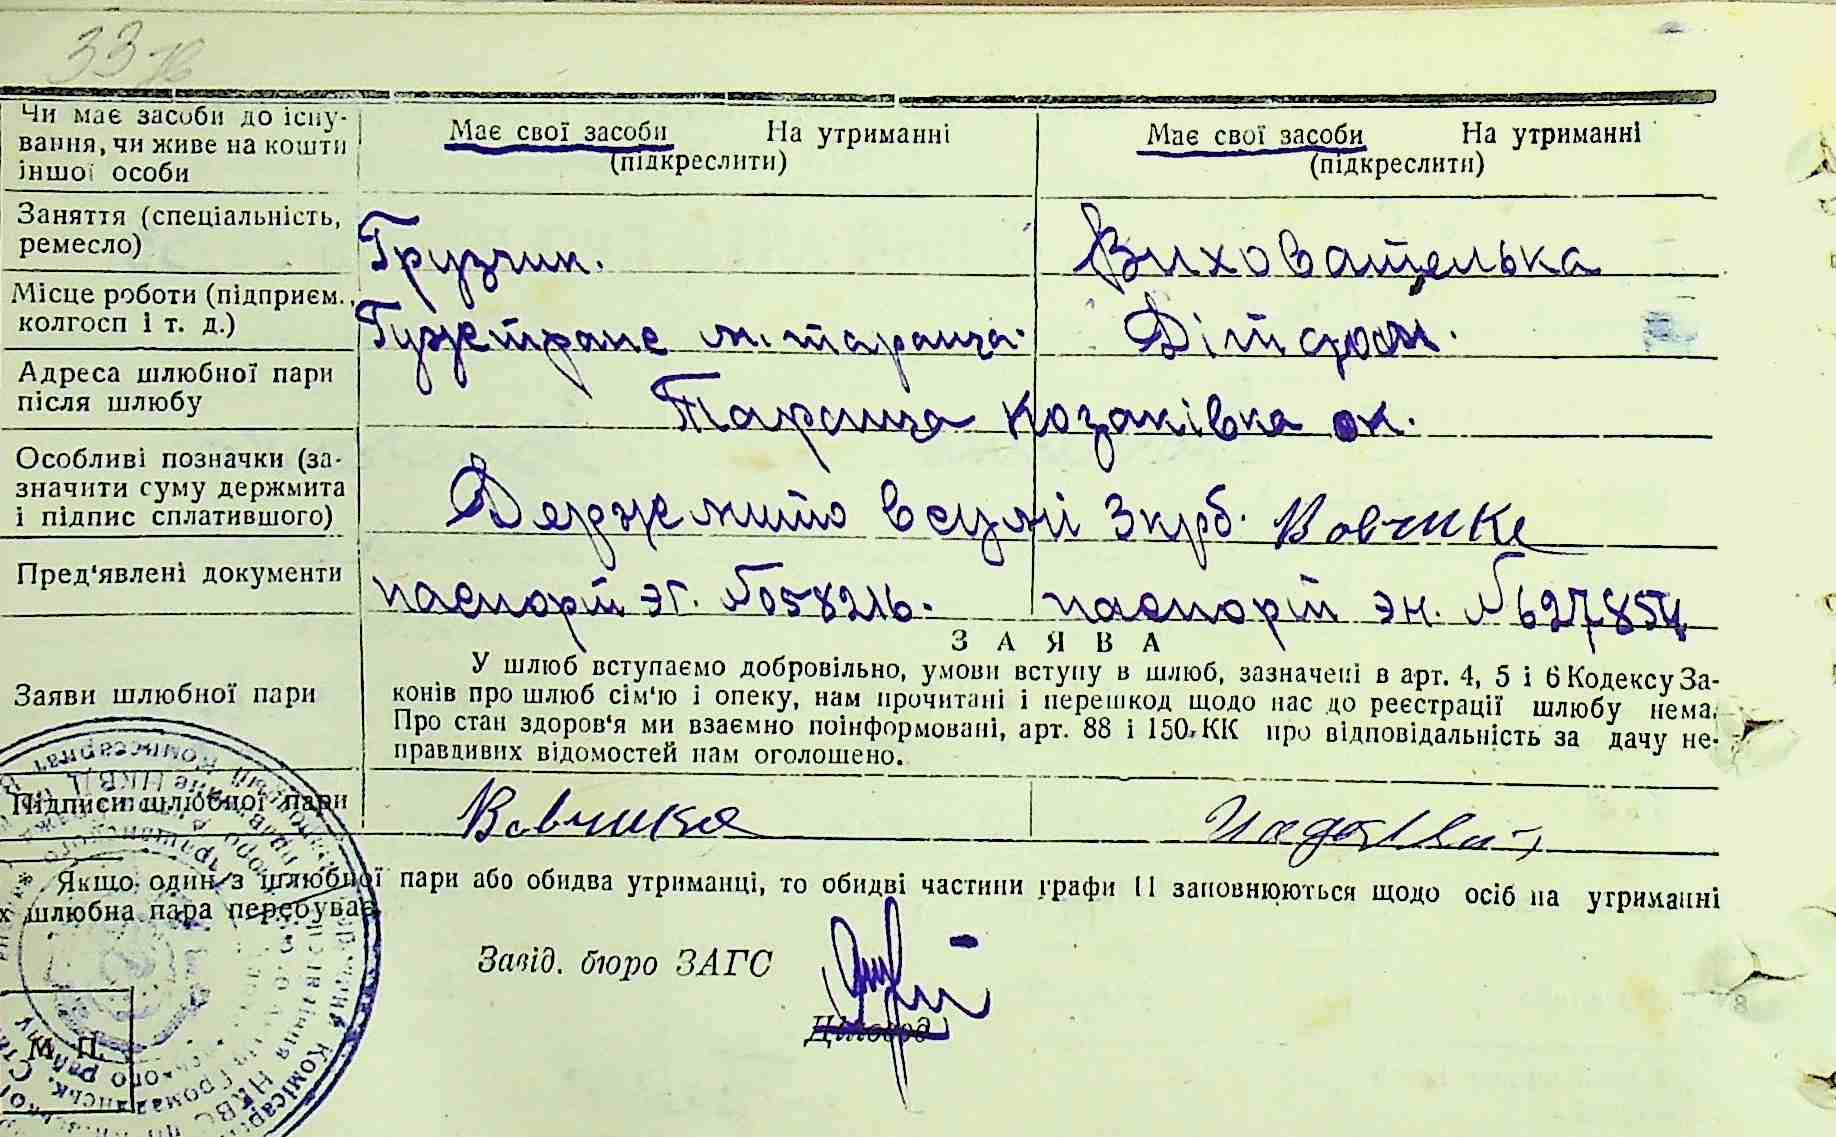 33
Чи має засоби до існу-
вання, чи живе на кошти
іншої особи
Має свої засоби На утриманні
(підкреслити)
Має свої засоби На утриманні
(підкреслити)
Заняття (спеціальність,
ремесло)
Грузчик.
Вихователька
Місце роботи (підприєм.,
колгосп і т. д.)
Гужтранс м. Тараща.
Дітсадок.
Адреса шлюбної пари
після шлюбу
Тараща Козаківка ок.
Особливі позначки (за-
значити суму держмита
і підпис сплатившого)
Держмито в сумі 3 крб. Вовчик
Пред'явлені документи
паспорт ЭГ. № 058216.
паспорт ЭН. № 627854
ЗАЯВА
Заяви шлюбної пари
У шлюб вступаємо добровільно, умови вступу в шлюб, зазначені в арт. 4, 5 і 6 Кодексу За-
конів про шлюб сім'ю і опеку, нам прочитані і перешкод щодо нас до реєстрації шлюбу нема.
Про стан здоров'я ми взаємно поінформовані, арт. 88 і 150, КК про відповідальність за дачу не-
правдивих відомостей нам оголошено.
Підписи шлюбної пари
Вовчик
Якщо один з шлюбної пари або обидва утриманці, то обидві частини графи 11 заповнюються щодо осіб на утриманні
х шлюбна пара перебуває.
Завід. бюро ЗАГС
Діловод
М. П.